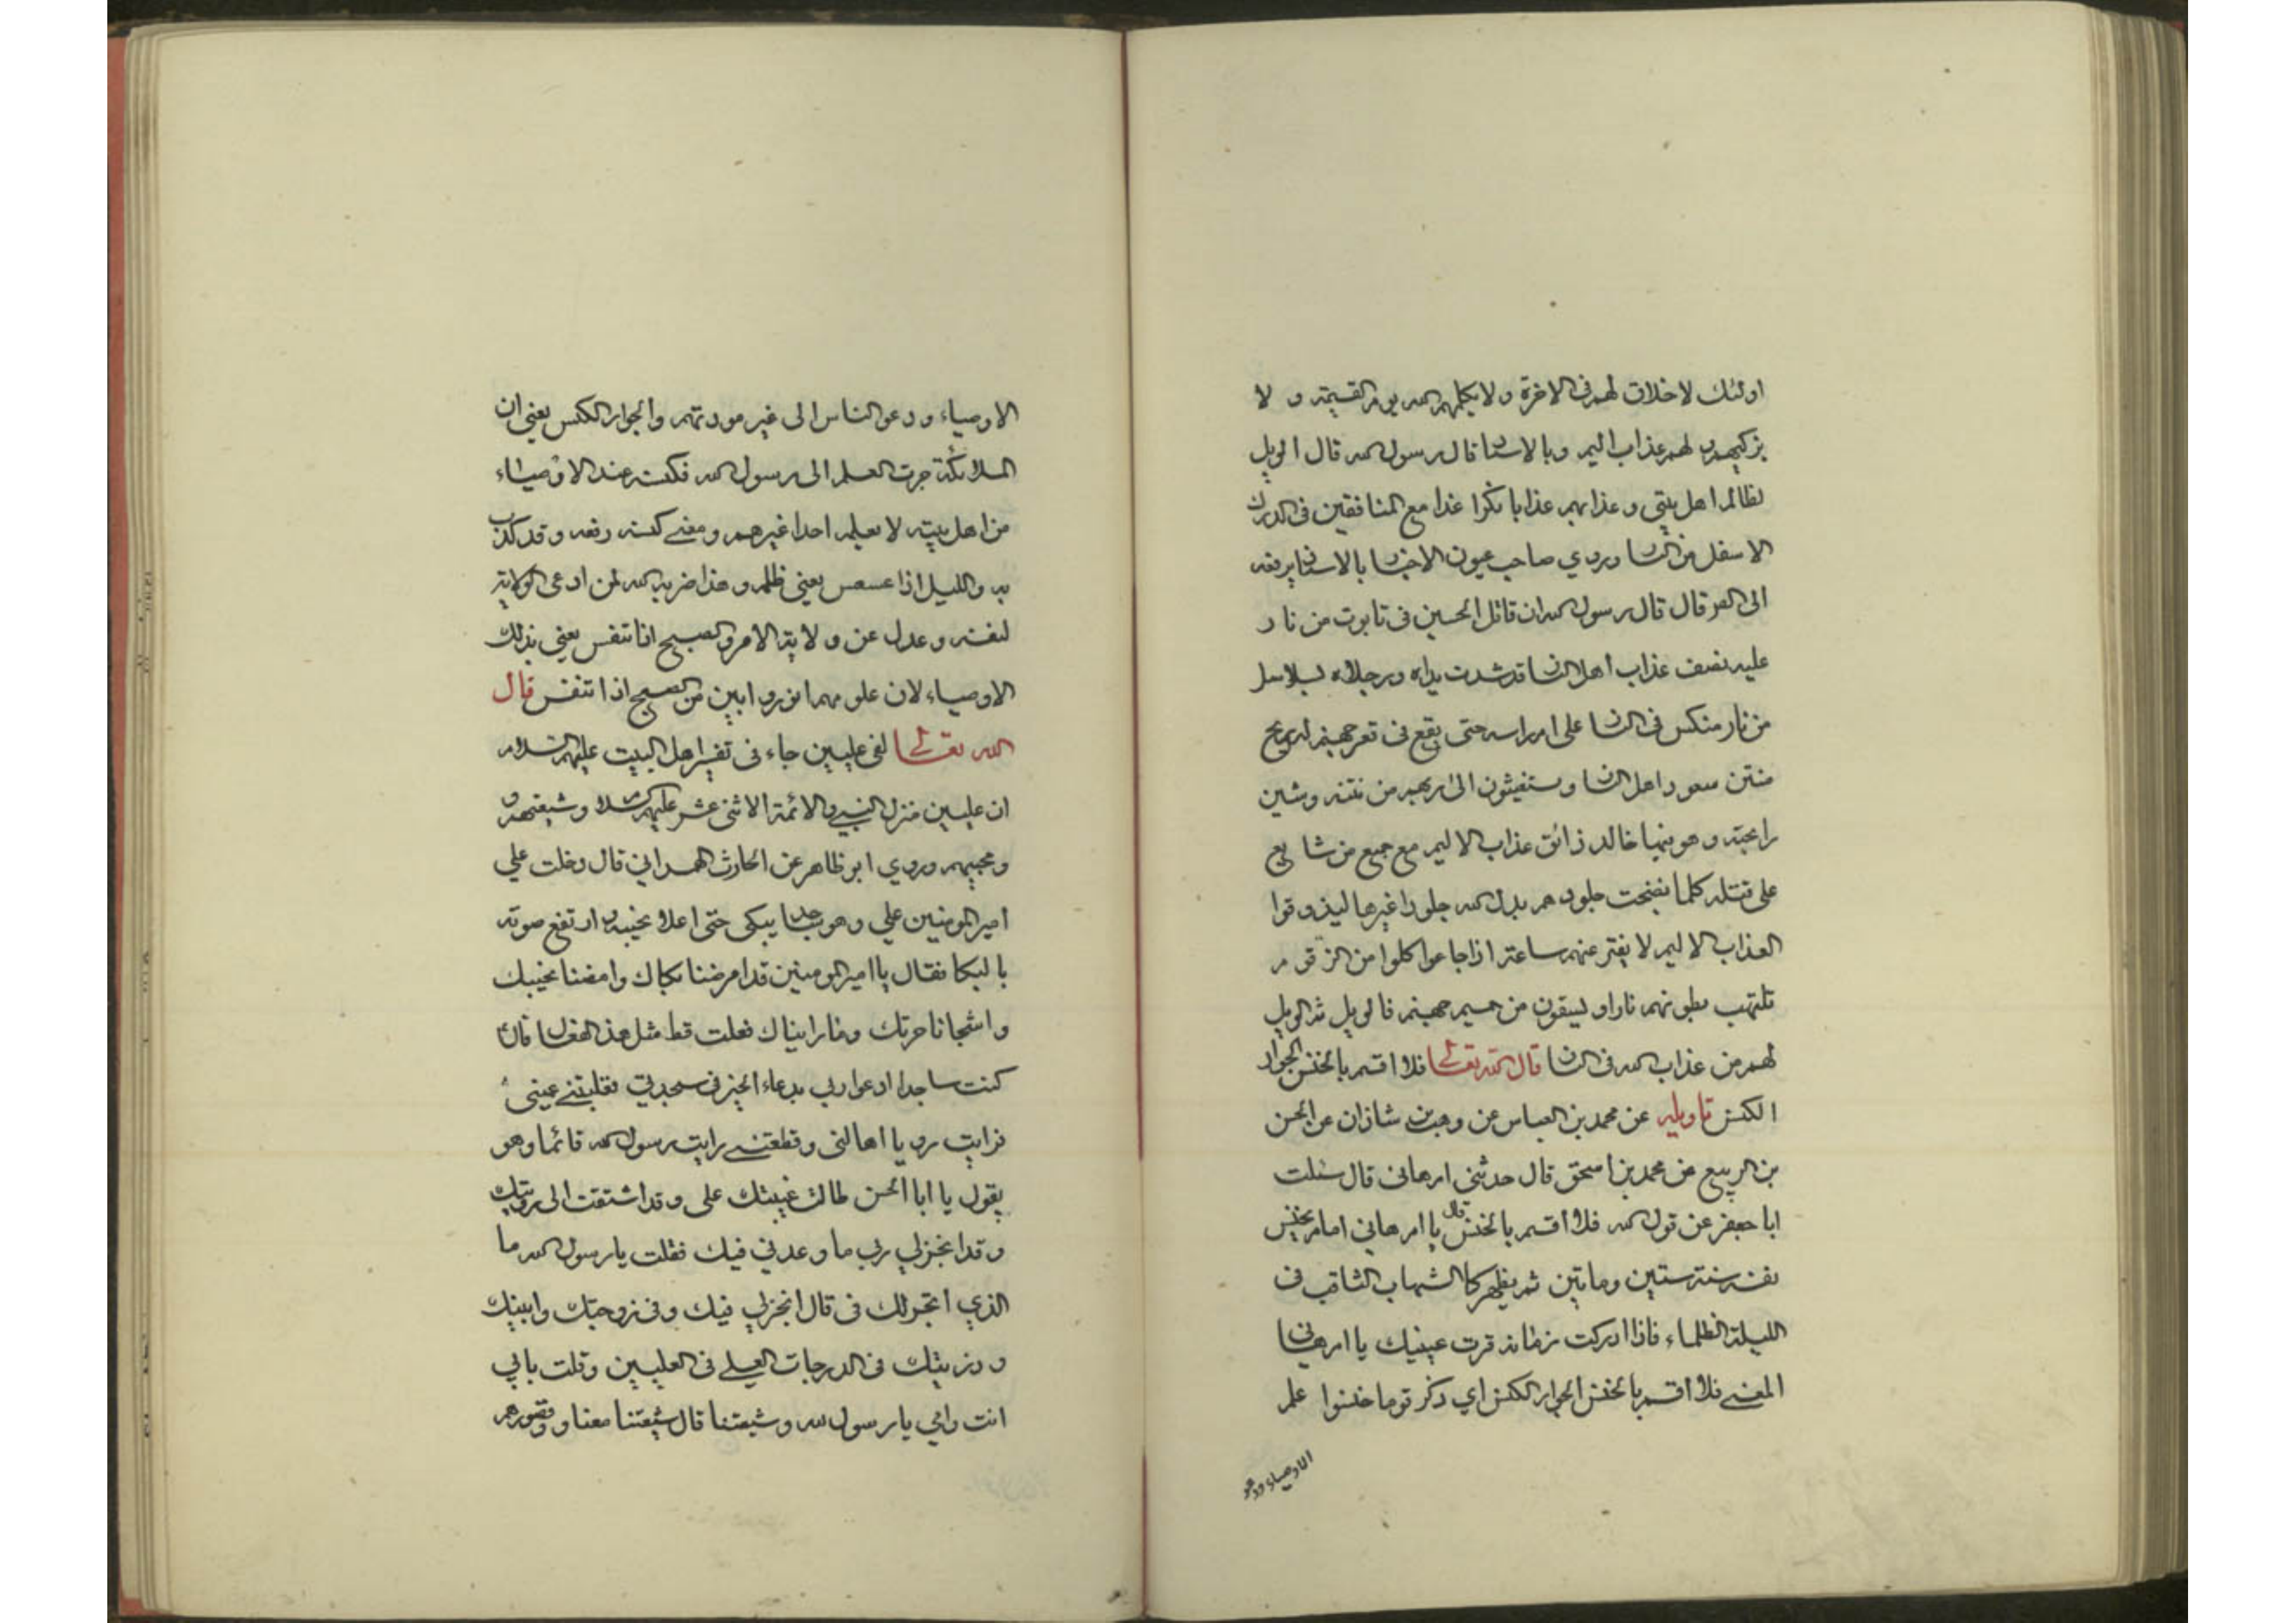 اولئك لاخلاق لهم فى الاخرة ولا يكلمهم الله يوم القيمة و لا
يزكيهم و لهم عذاب اليم وبالاسنا قال رسول الله قال الويل
لظالم اهل بيتى وعذابهم عذابا نكرا غدا مع المنافقين فى الدرك
الاسفل من النار وروي صاحب عيون الاخبار بالاسناد يرفعه
الى قال قال رسول الله ان قاتل الحسين فى تابوت من نار
عليه نصف عذاب اهل النار قد شدت يداه ورجلاه بسلاسل
من نار منكس فى النار على ام راسه حتى يقع فى قعر جهنم له ريح
منتن اهل النار و ستغيثون الى ربهم من نتنه وشين
رايحته وهو فيها خالد ذائق عذاب الاليم مع جميع من شايع
على قتله كلما نضجت جلودهم بدل الله جلودا غيرها ليذوقوا
العذاب الاليم لا يفتر عنهم ساعة اذا جاعوا اكلوا من الزقوم
تلتهب بطونهم نارا و ليسقون من حميم جهنم فالويل ثم الويل
لهم من عذاب الله فى النار قال الله تعالى فلا اقسم بالخنس الجوار
الكنس تاويله عن محمد بن العباس عن وهب بن شاذان عن الحسن
بن الربيع عن محمد بن اسحق قال حدثنى ام هانى قال سئلت
ابا جعفر عن قول الله فلا اقسم بالخنس قال يا ام هانى امام يخنس
نفسه سنة ستين وماتين ثم يظهر كالشهاب الثاقب فى
الليلة الظلماء فاذا ادركت زمانه قرت عينيك يا ام هانى
المعنى فلا اقسم بالخنس الجوار الكنس اي ذكر قوما خنسوا علم
الاوصياء ودعو
الاوصياء ودعو الناس الى غير مودتهم والجوار الكنس يعنى ان
الملائكة جرت العلم الى رسول الله فكنسه عند الاوصياء
من اهل بيته لا يعلمه احدا غيرهم ومعنى كنسه رفعه وقد
به والليل اذا عسعس يعنى ظلمه وهذا ضربه الله لمن ادعى الولاية
لنفسه وعدل عن ولاية الامر والصبح اذا تنفس يعنى بذلك
الاوصياء لان علومهم انور وابين من الصبح اذا تنفس قال
الله تعالى لفى عليين جاء فى تفسير اهل البيت عليهم السلام
ان عليين منزل النبى والائمة الاثنى عشر عليهم السلام وشيعتهم و
ومحبيهم وروي ابو طاهر عن الحارث الهمدانى قال دخلت على
امير المومنين على وهو ساجد يبكى حتى اعلا نحيبه وارتفع صوته
بالبكا فقال يا امير المومنين قد امرضنا بكاك وامضنا نحيبك
واشجانا حزنك وما رايناك فعلت قط مثل هذا الفعل قال
كنت ساجدا ادعوا ربى بدعاء الخير فى سجدتى فغلبتنى عينى
فرايت رويا اهالنى وقطعتنى رايت رسول الله قائما وهو
يقول يا ابا الحسن طالت غيبتك على وقد اشتقت الى رويتك
وقد انجز لي ربي ما وعدني فيك فقلت يا رسول الله ما
الذي انجز لك فى قال انجز لي فيك وفى زوجتك وابنيك
و ذريتك فى الدرجات العلى فى العليين وقلت بابي
انت وامي يا رسول الله وشيعتنا قال شيعتنا معنا وقصورهم